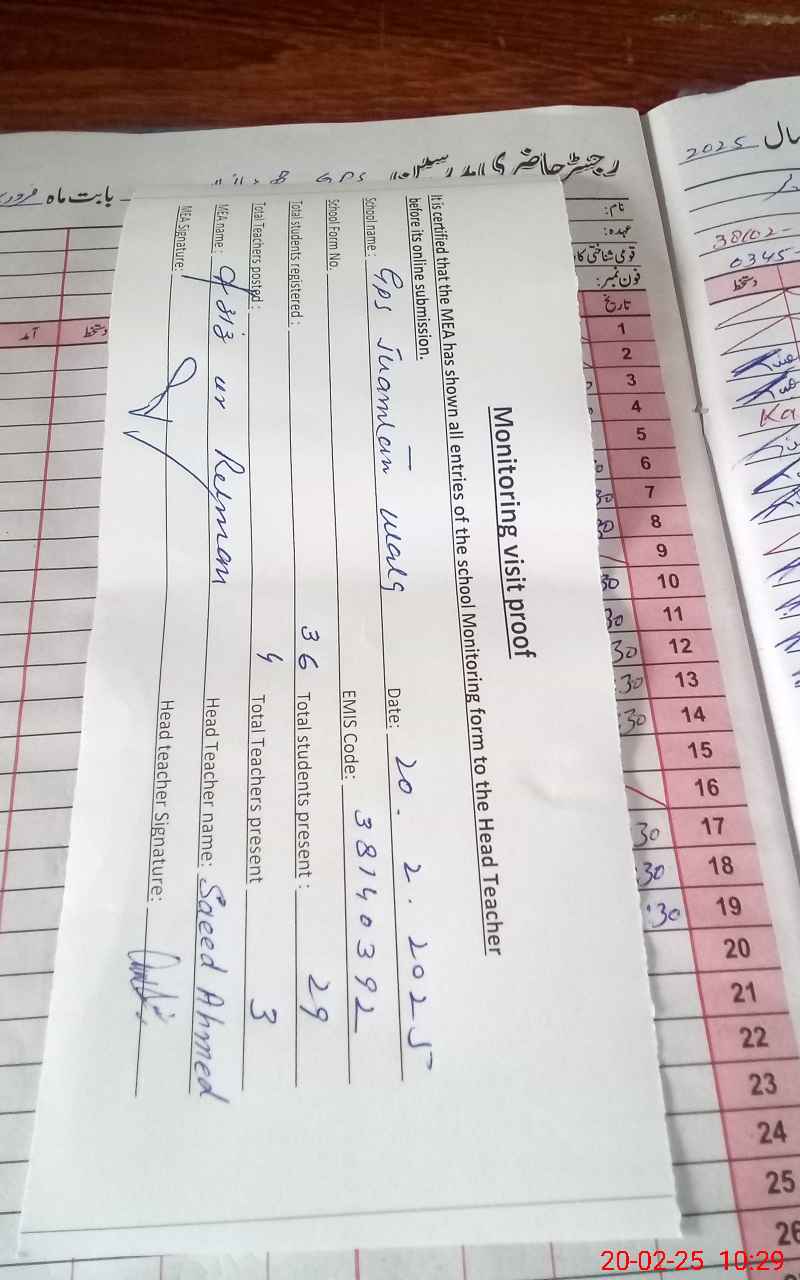 Monitoring visit proof
It is certified that the MEA has shown all entries of the school Monitoring form to the Head Teacher
before its online submission.
School name: GPS Date: 20.2.2025
School Form No. EMIS Code: 38140392
Total students registered: 36 Total students present: 29
Total Teachers posted: 4 Total Teachers present 3
MEA name: ur Rehman Head Teacher name: Saeed Ahmed
MEA Signature: Head teacher Signature:
رجسٹر حاضری GPS
بابت ماہ
نام:
عہدہ:
فون نمبر:
تاریخ
1
2
3
4
5
6
7
8
9
10
11
12
13
14
15
16
17
18
19
20
21
22
23
24
25
26
30
30
30
30
30
:30
:30
30
:30
:30
دستخط
آمد
سال 2025
38102-
0345-
دستخط
20-02-25 10:29